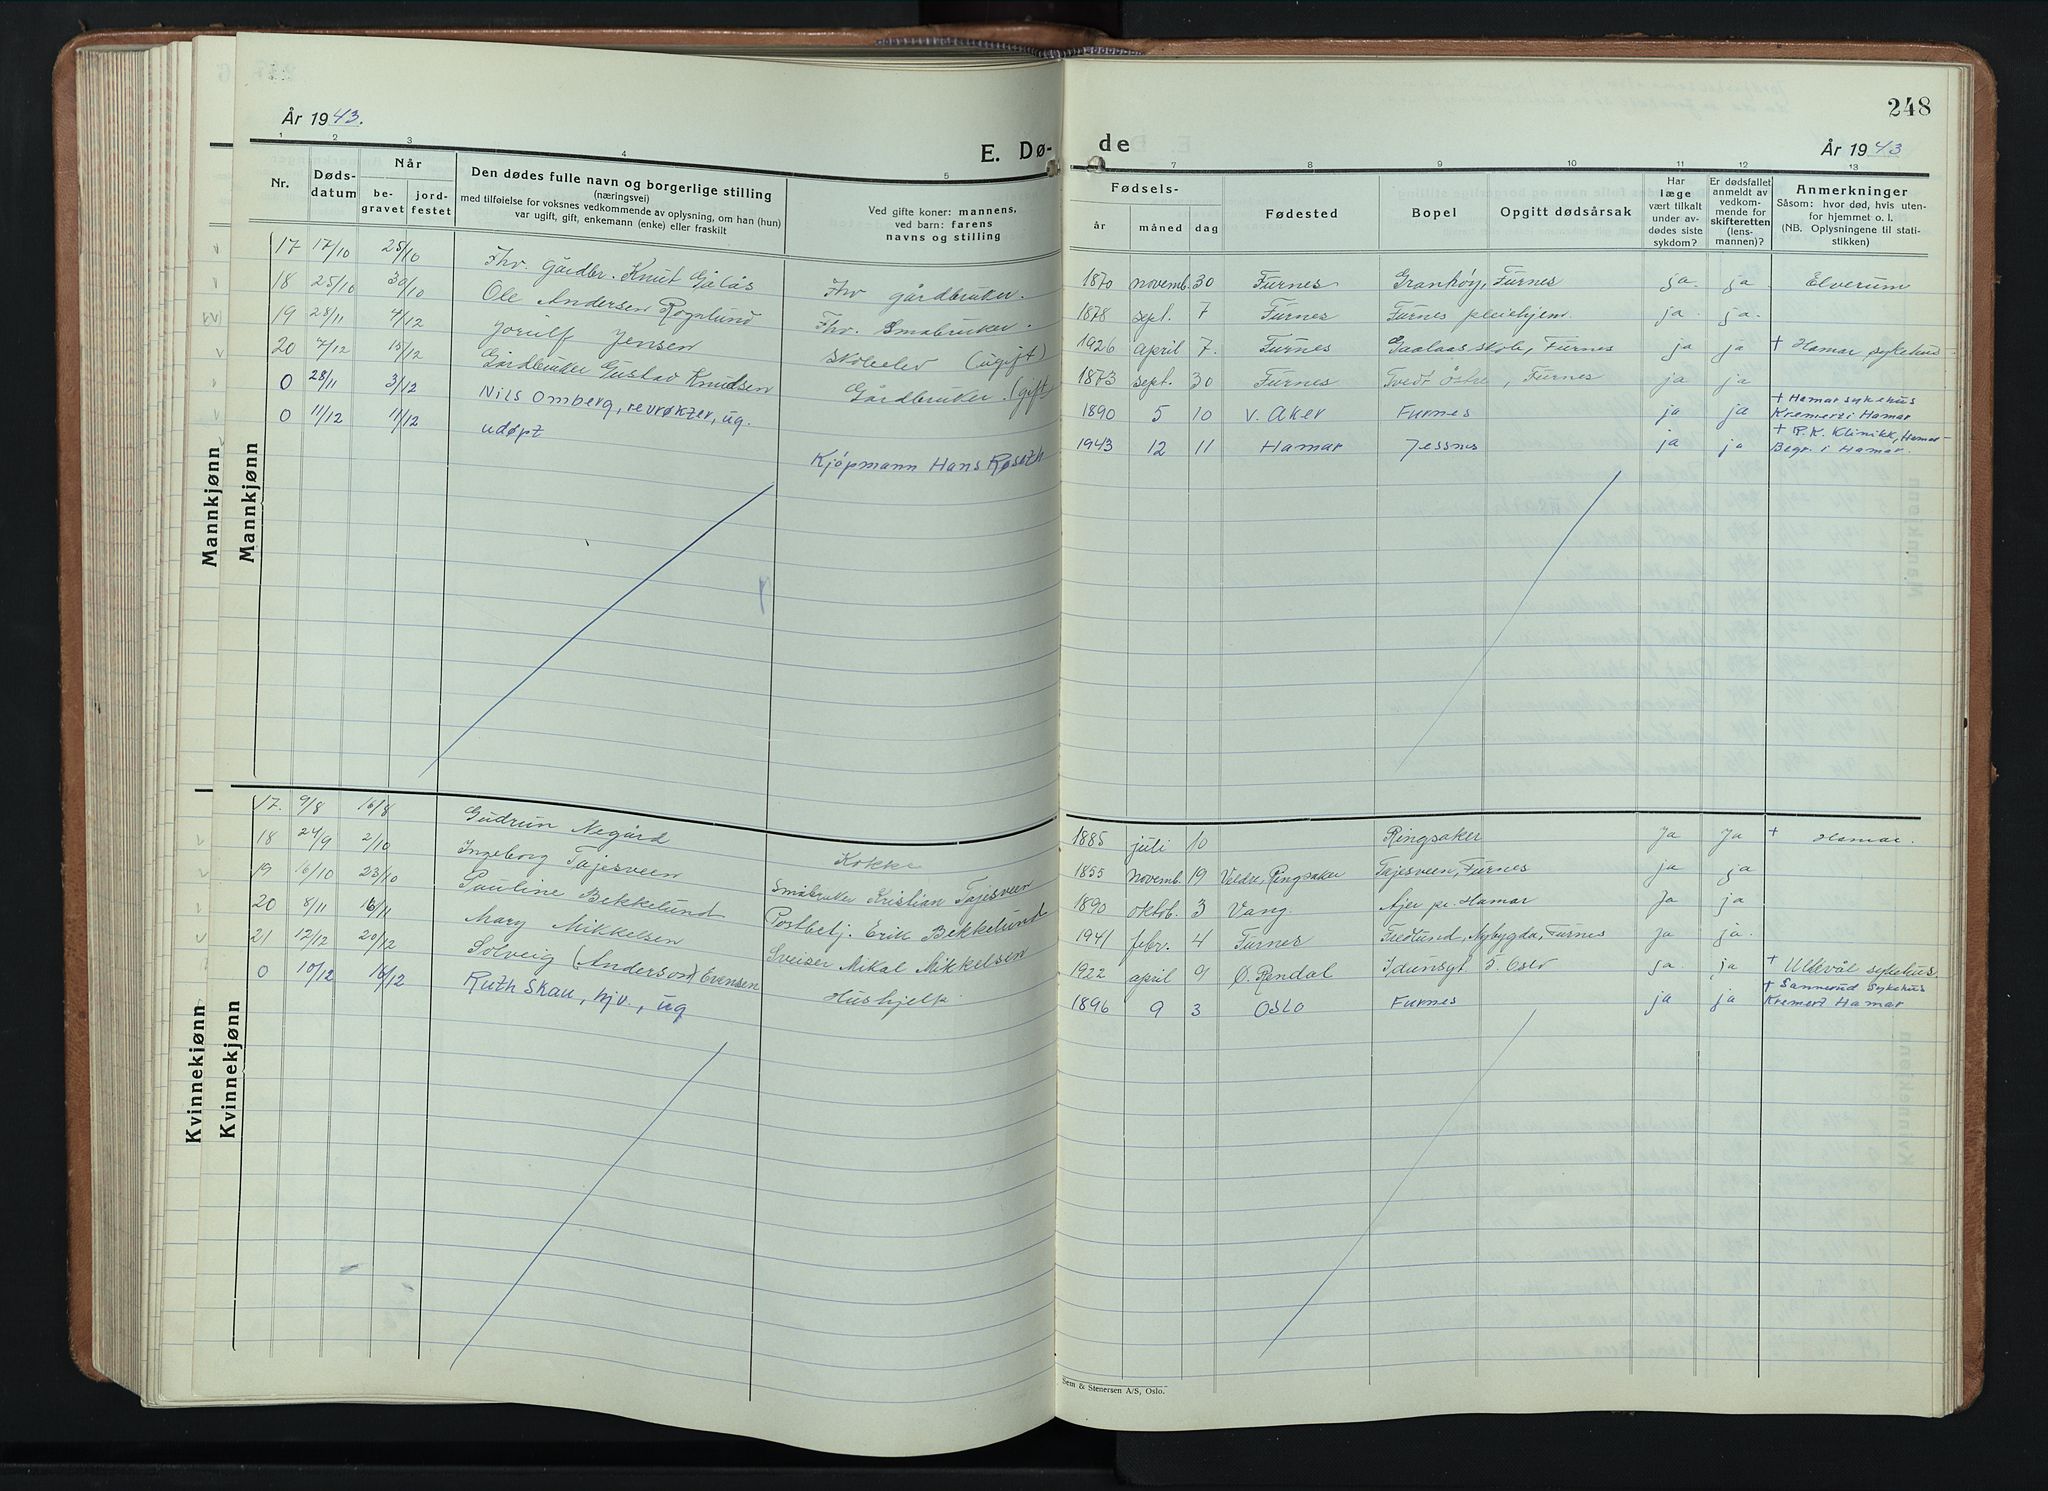 248
År 1943.
E. Dø-
de
År 1943
1 2 3 4 5 7 8 9 10 11 12 13
Nr.
Døds-
datum
Når
be-
gravet
jord-
festet
Den dødes fulle navn og borgerlige stilling
(næringsvei)
med tilføielse for voksnes vedkommende av oplysning, om han (hun)
var ugift, gift, enkemann (enke) eller fraskilt
Ved gifte koner: mannens,
ved barn: farens
navns og stilling
Fødsels-
år måned dag
Fødested
Bopel
Opgitt dødsårsak
Har
læge
vært tilkalt
under av-
dødes siste
sykdom?
Er dødsfallet
anmeldt av
vedkom-
mende for
skifteretten
(lens-
mannen)?
Anmerkninger
Såsom: hvor død, hvis uten-
for hjemmet o. l.
(NB. Oplysningene til stati-
stikken)
Mannkjønn
Mannkjønn
17 17/10 25/10 Fhv. Gårdbr. Knut Gålås Fhv gårdbruker. 1870 novemb. 30 Furnes Granhøy, Furnes ja. ja. Elverum
18 25/10 30/10 Ole Andersen Rognlund Fhv. Småbruker. 1878 sept. 7 Furnes Furnes pleiehjem. ja. ja.
19 28/11 4/12 Jorulf Jensen Skoleelev (ugift) 1926 april 7. Furnes Gaalaas skole, Furnes ja ja + Hamar sykehus.
20 7/12 15/12 Gårdbruker Gustav Knudsen Gårdbruker. (gift) 1873 sept. 30 Furnes Tvedt Østre, Furnes ja ja
0 28/11 3/12 Nils Omberg, revrøkter, ug. 1890 5 10 V. Aker Furnes ja ja + Hamar sykehus
Kremert i Hamar
0 11/12 11/12 udøpt Kjøpmann Hans Røseth 1943 12 11 Hamar Jessnes ja ja + R.K. Klinikk, Hamar
Begr. i Hamar.
Kvinnekjønn
Kvinnekjønn
17. 9/8 16/8 Gudrun Negård Kokke 1885 juli 10 Ringsaker Ja Ja + Hamar.
18 24/9 2/10 Ingeborg Tajesveen Småbruker Kristian Tajesveen 1855 novemb. 19 Veldre, Ringsaker Tajesveen, Furnes ja ja
19 16/10 23/10 Pauline Bekkelund Postbetj. Erik Bekkelund 1890 oktob. 3 Vang. Ajer pr. Hamar Ja ja
20 8/11 16/11 Mary Mikkelsen Sveiser Mikal Mikkelsen 1941 febr. 4 Furnes Fredlund, Nybygda, Furnes Ja ja.
21 12/12 20/12 Solveig (Anderson) Evensen Hushjelp. 1922 april 9 Ø. Rendal Idunsgt Oslo ja. ja + Ullevål sykehus.
0 10/12 16/12 Ruth Skau, hjv., ug 1896 9 3 Oslo Furnes ja ja + Sannerud Sykehus
Kremert Hamar
Sem & Stenersen A/S, Oslo.